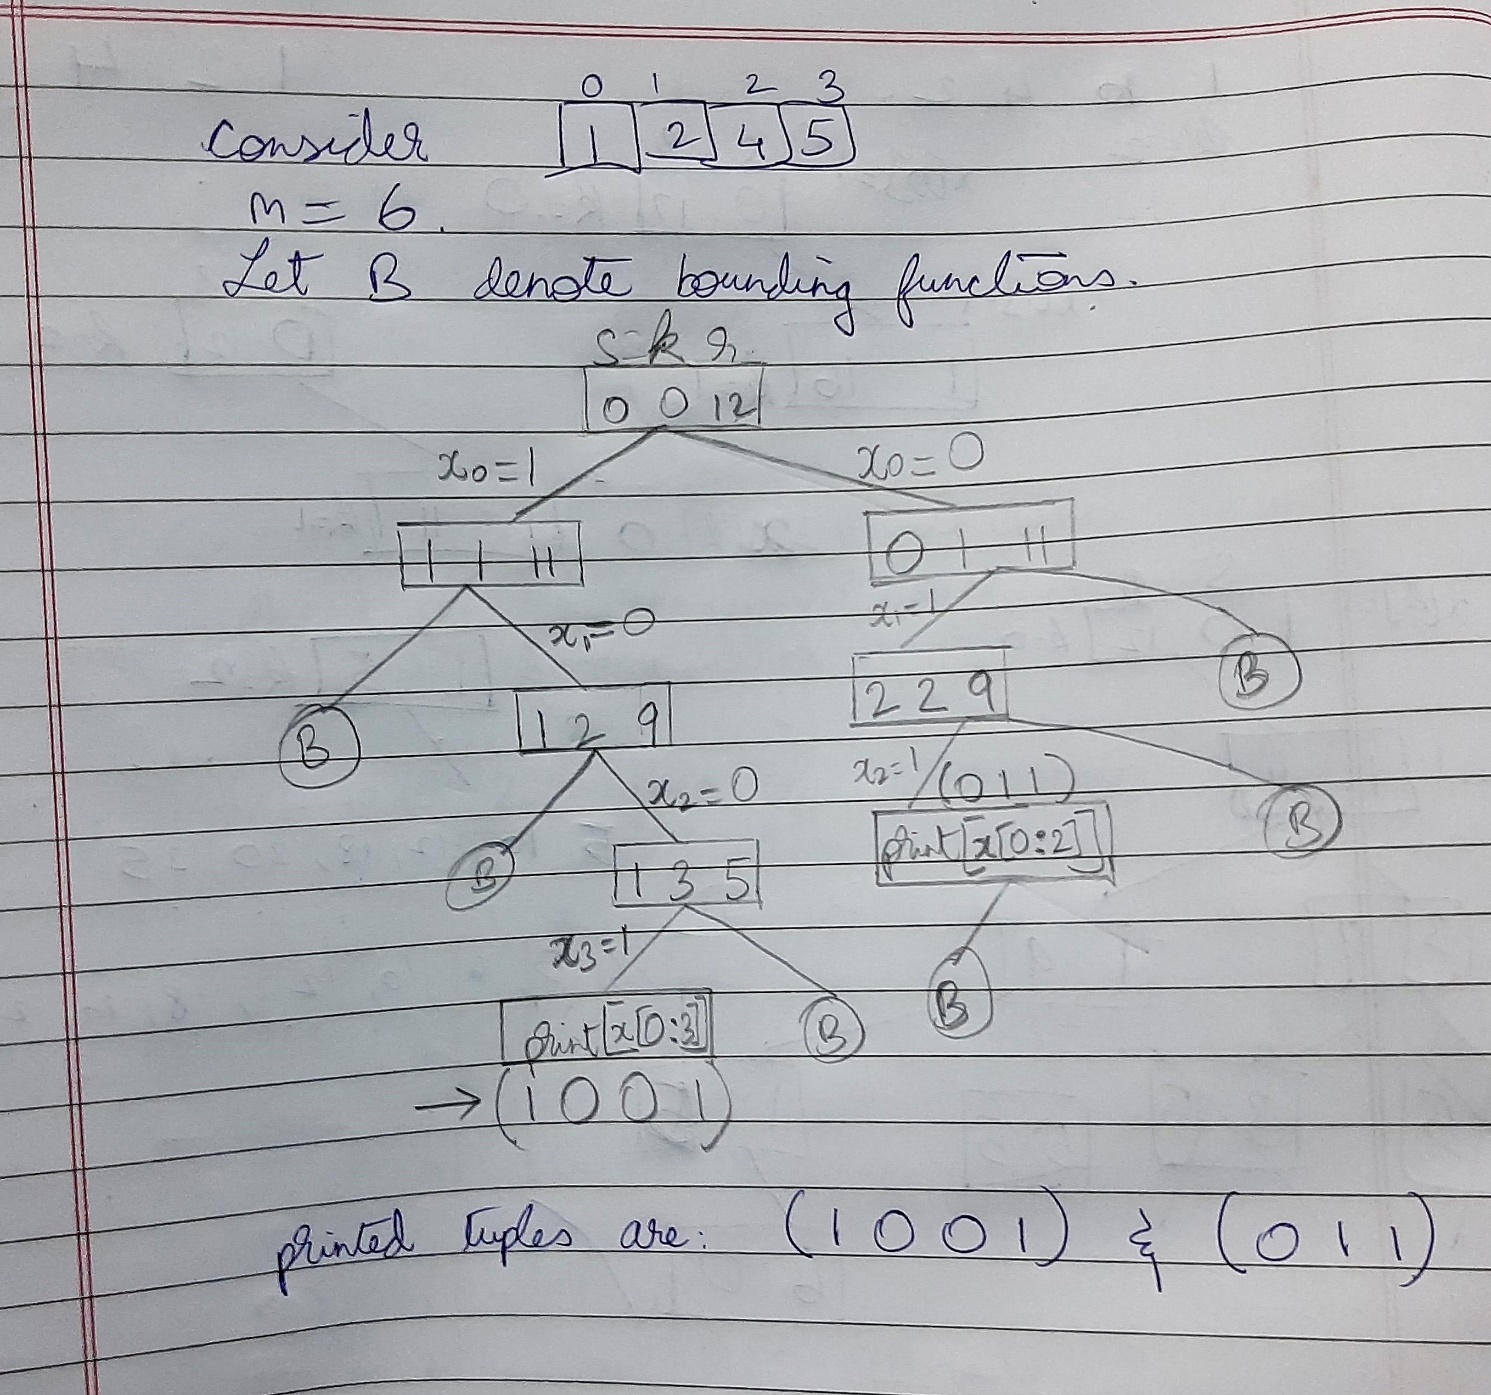 0 1 2 3
Consider 1 2 4 5
m = 6.
Let B denote bounding functions.
s k r
0 0 12
x₀=1 x₀=0
1 1 11 0 1 11
x₁=0 x₁=1
B 1 2 9 2 2 9 B
x₂=0 x₂=1 (011)
B 1 3 5 print[x[0:2]] B
x₃=1
print[x[0:3]] B B
→(1001)
printed tuples are: (1001) & (011)